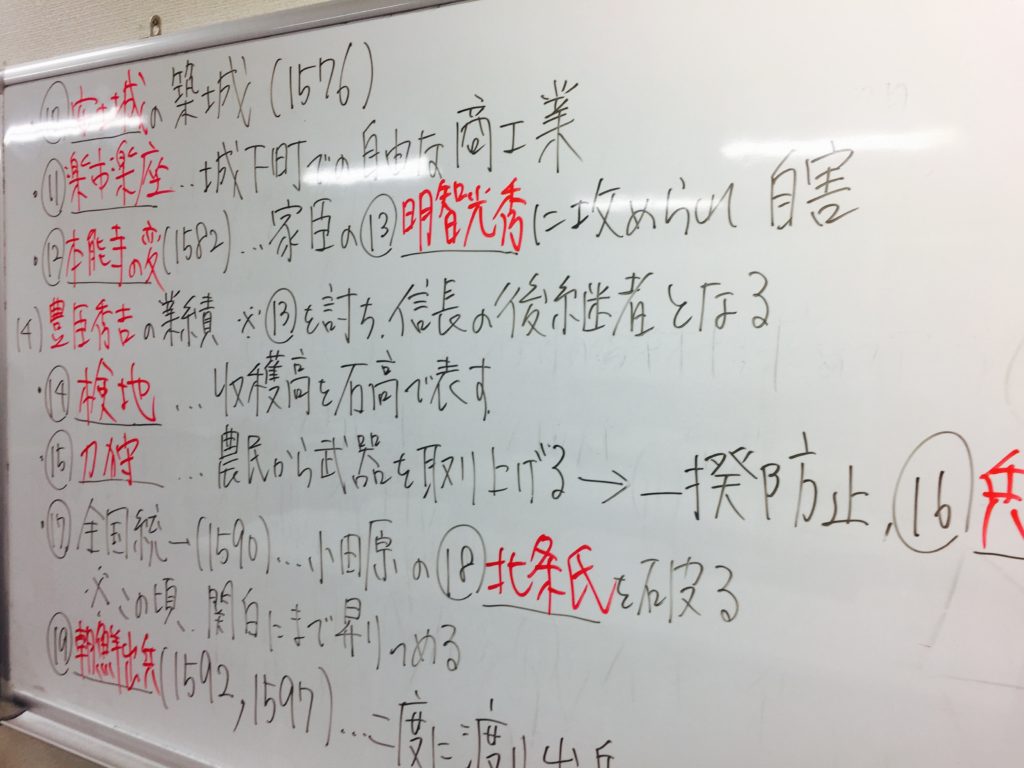 ・⑩安土城の築城 (1576)
・⑪楽市楽座…城下町での自由な商工業
・⑫本能寺の変(1582)…家臣の⑬明智光秀に攻められ自害
(4)豊臣秀吉の業績 ※⑬を討ち、信長の後継者となる
・⑭検地…収穫高を石高で表す
・⑮刀狩…農民から武器を取り上げる→一揆防止、⑯兵
・⑰全国統一(1590)…小田原の⑱北条氏を破る
※この頃、関白にまで昇りつめる
⑲朝鮮出兵(1592,1597)…二度に渡り出兵